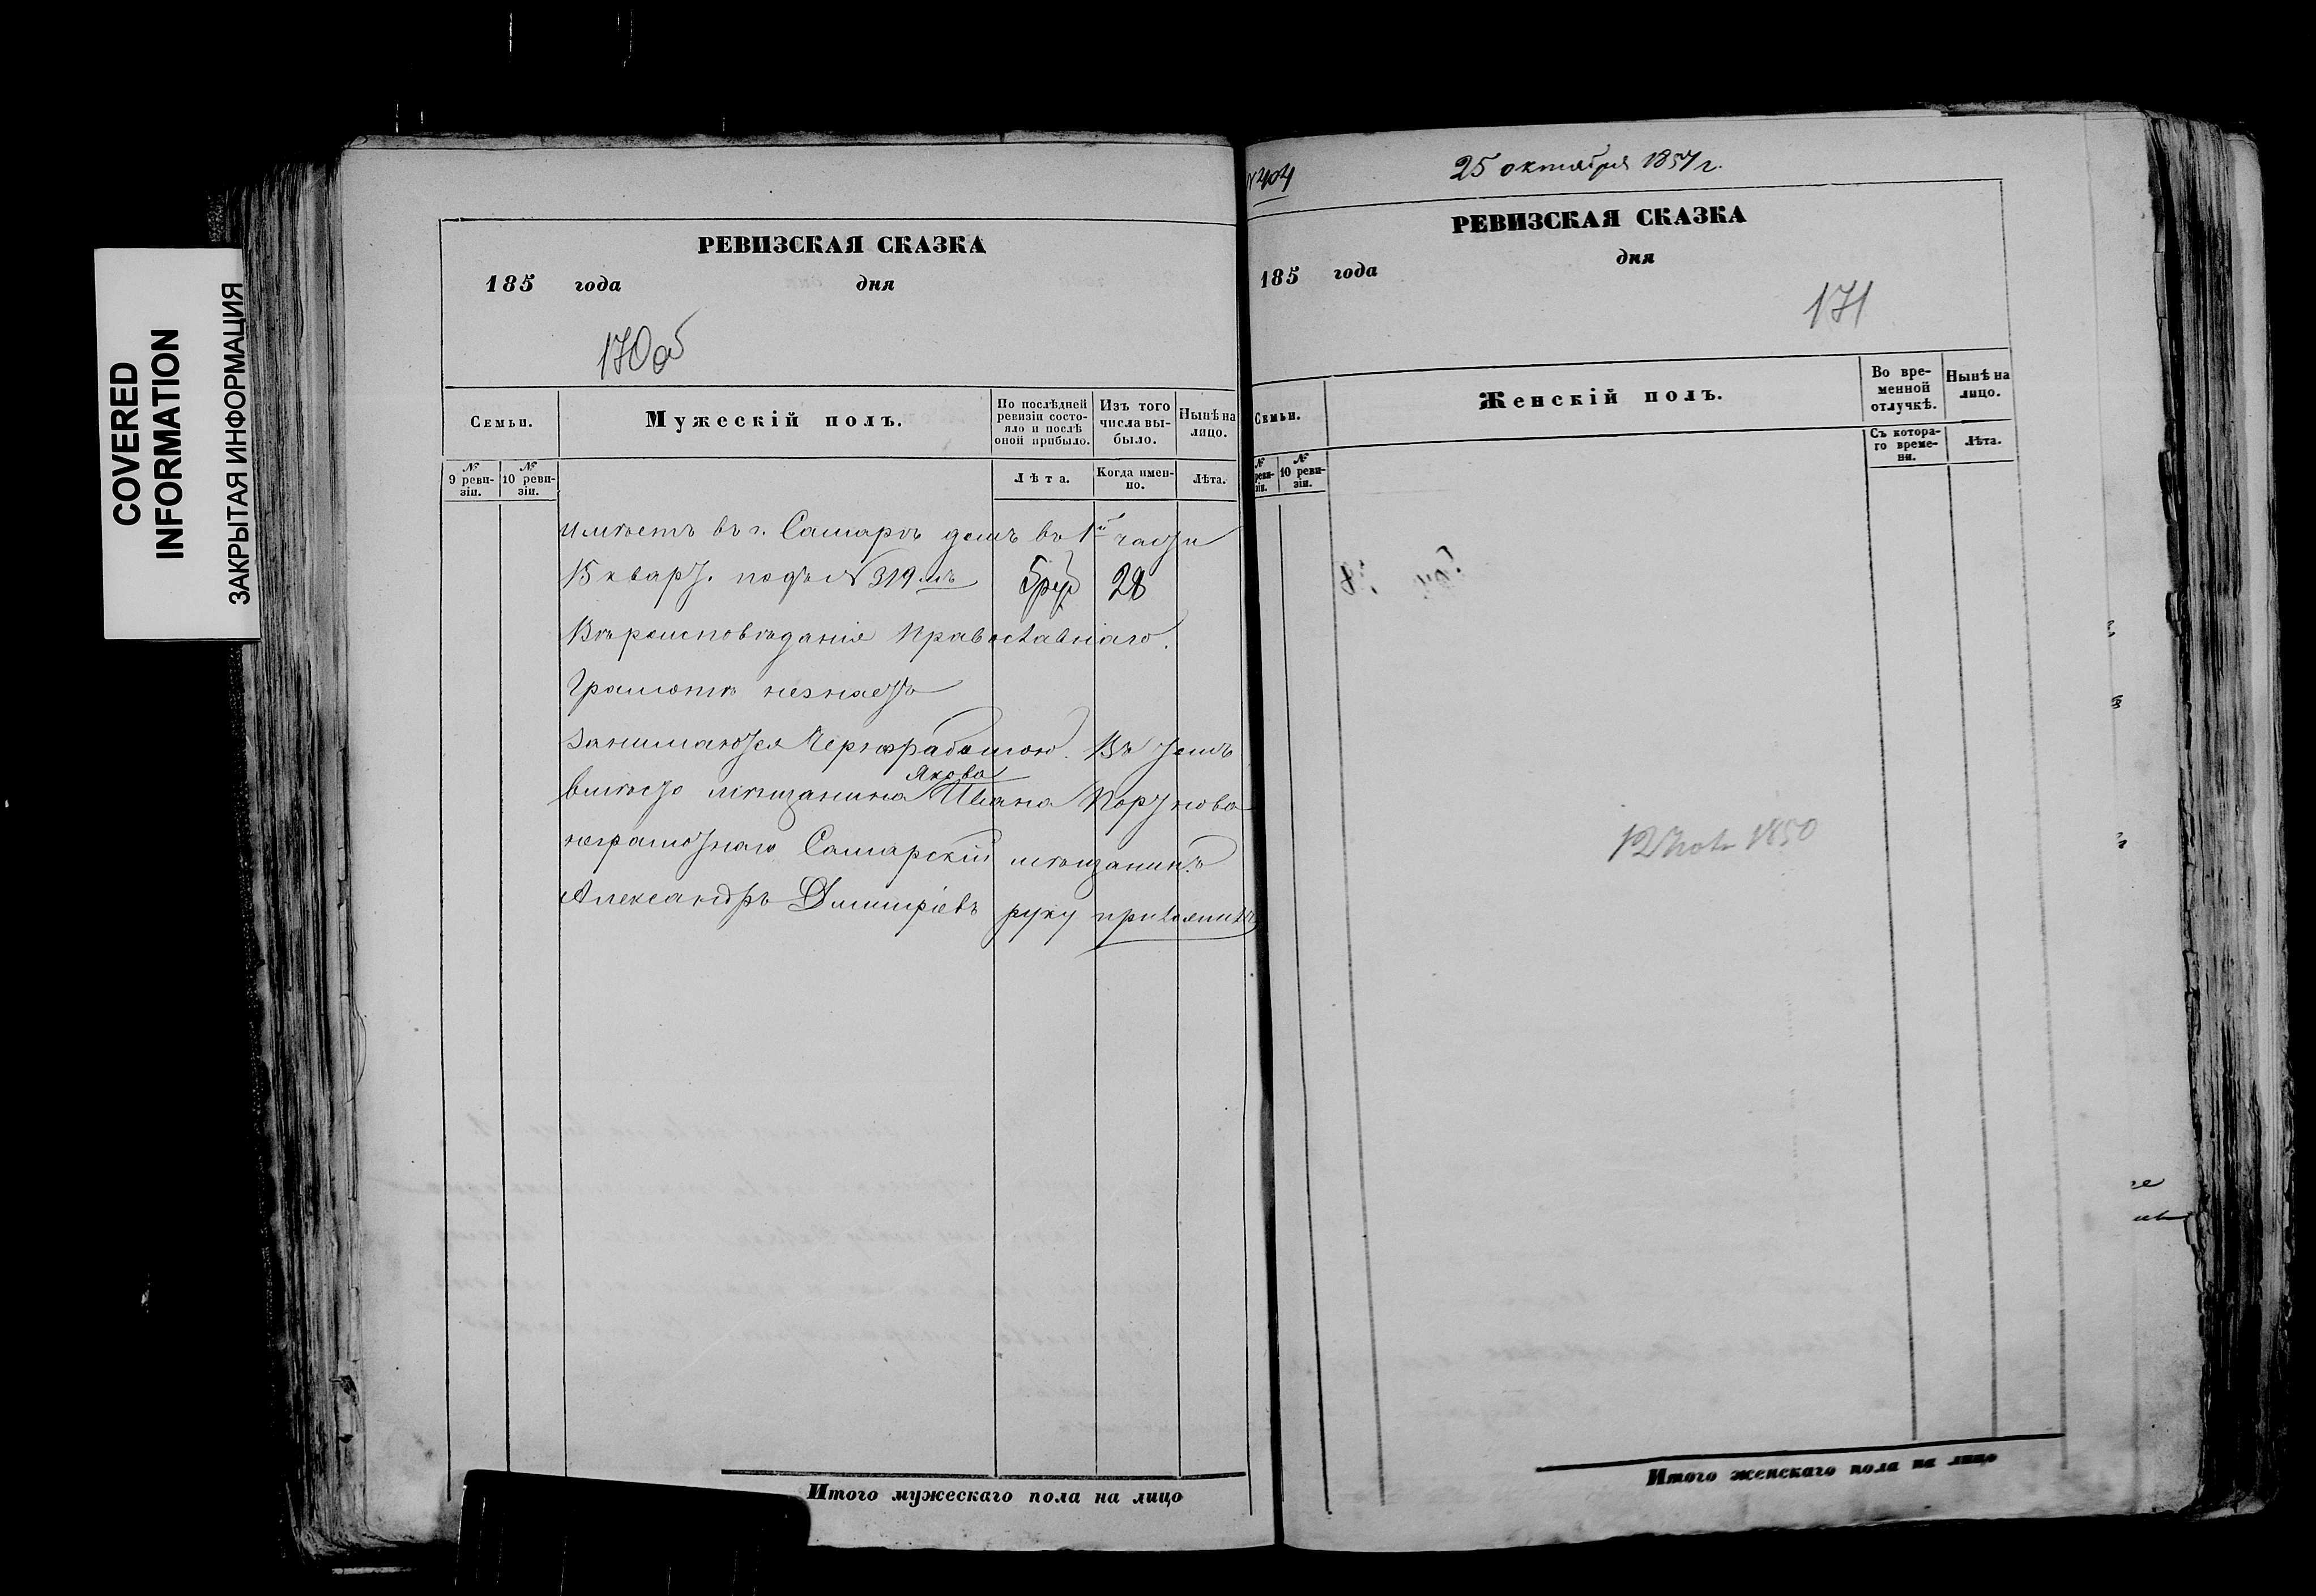 COVERED
INFORMATION
ЗАКРЫТАЯ ИНФОРМАЦИЯ
РЕВИЗСКАЯ СКАЗКА
185 года дня
170об
Семьи.
Мужескій полъ.
По послѣдней ревизіи состояло и послѣ оной прибыло.
Изъ того числа выбыло.
Нынѣ на лицо.
№ 9 ревизіи.
№ 10 ревизіи.
Лѣта.
Когда именно.
Лѣта.
имѣетъ въ г. Самарѣ домъ въ 1й части
15 кварт. подъ № 319.мъ 5ру 28
Вѣроисповѣданія Православнаго.
Грамотѣ незнаетъ
Занимаются Чернработою. Въ томъ
вмѣсто мѣщанина Якова Ивана Портнова
неграмотнаго Самарскій мѣщанинъ
Александръ Димитріевъ руку приложилъ
Итого мужескаго пола на лицо
№ 404
25 октября 1857 г.
РЕВИЗСКАЯ СКАЗКА
185 года дня
171
Семьи.
Женскій полъ.
Во временной отлучкѣ.
Нынѣ на лицо.
№ ревизіи.
№ 10 ревизіи.
Съ котораго времени.
Лѣта.
1850
Итого женскаго пола на лицо